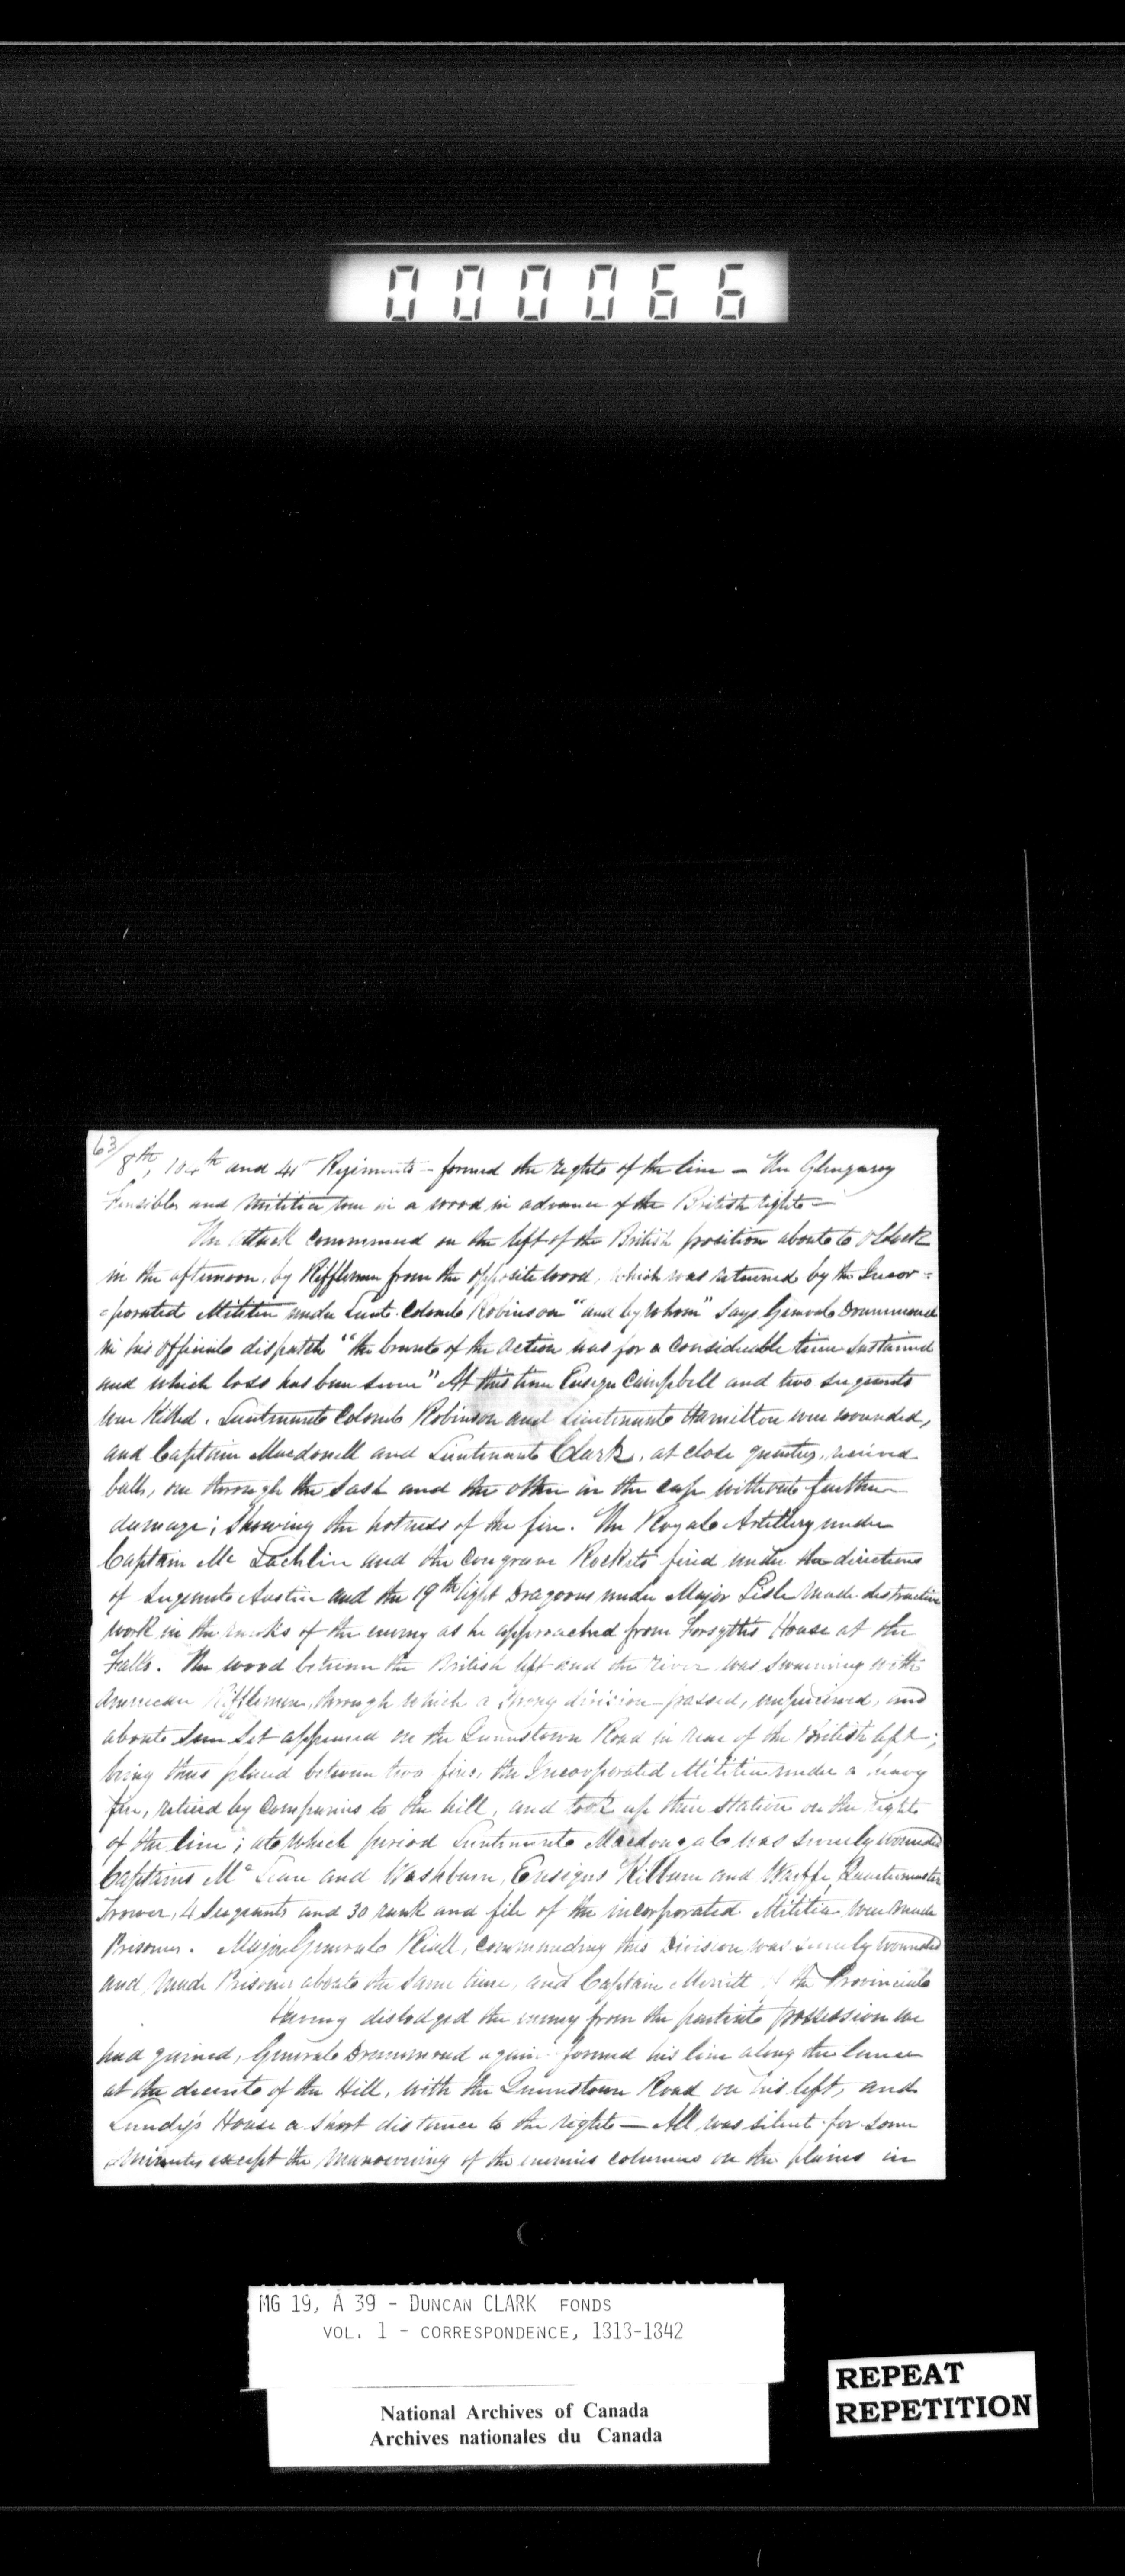 000066
63/
8th, 104th and 41st Regiments - formed the right of the line - The Glengarry
Fencibles and Militia were in a wood in advance of the British right -
The attack commenced on the left of the British position about 6 o'Clock
in the afternoon, by Rifflemen from the opposite wood, which was returned by the Incor=
=porated Militia under Lieut. Colonel Robinson "and by whom" says General Drummond
in his official dispatch "the brunt of the action was for a considerable time sustained
and which loss has been severe" At this time Ensign Campbell and two sergeants
were killed. Lieutenant Colonel Robinson and Lieutenant Hamilton were wounded,
and Captain Macdonell and Lieutenant Clark, at close quarters, received
balls, one through the Sash and the other in the cap without further
damage; showing the hotness of the fire. The Royal Artillery under
Captain Mc Lachlin and the Congrave Rockets fired under the directions
of Sergeant Austin and the 19th light Dragoons under Major Lisle made destructive
work in the ranks of the enemy as he approached from Forsyth's House at the
Falls. The wood between the British left and the river was swarming with
American Rifflemen, through which a strong division passed, unperceived, and
about Sun Set appeared on the Queenstown Road in rear of the British left;
being thus placed between two fires, the Incorporated Militia under a heavy
fire, retired by Companies to the hill, and took up their station on the right
of the line; at which period Lieutenant Macdougal was severely wounded
Captains Mc Lean and Washburn, Ensigns Kilburn and Warffe, Quartermaster
Thrower, 4 Sergeants and 30 rank and file of the incorporated Militia were made
Prisoners. Major General Riall, commanding this Division, was severely wounded
and made Prisoner about the same time, and Captain Merritt of the Provincial
having dislodged the enemy from the partial possession we
had gained, General Drummond again formed his line along the lane
at the descent of the Hill, with the Queenstown Road on his left, and
Lundy's House a short distance to the right - All was silent for some
minutes except the manoeuvring of the enemies columns on the plains in
MG 19, A 39 - DUNCAN CLARK FONDS
VOL. 1 - CORRESPONDENCE, 1813-1842
National Archives of Canada
Archives nationales du Canada
REPEAT
REPETITION